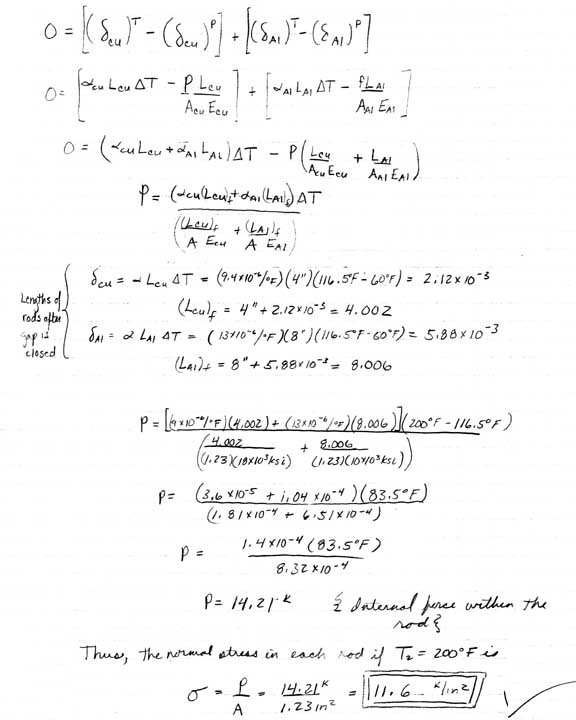 0 = [(δcu)^T − (δcu)^P] + [(δAl)^T − (δAl)^P]
0 = [αcu Lcu ΔT − P Lcu / Acu Ecu] + [αAl LAl ΔT − PLAl / AAl EAl]
0 = (αcu Lcu + αAl LAl) ΔT − P(Lcu / Acu Ecu + LAl / AAl EAl)
P = (αcu(Lcu)f + αAl(LAl)f) ΔT / ((Lcu)f / A Ecu + (LAl)f / A EAl)
Lengths of rods after gap is closed
δcu = α Lcu ΔT = (9.4×10⁻⁶/°F)(4")(116.5°F − 60°F) = 2.12×10⁻³
(Lcu)f = 4" + 2.12×10⁻³ = 4.002
δAl = α LAl ΔT = (13×10⁻⁶/°F)(8")(116.5°F − 60°F) = 5.88×10⁻³
(LAl)f = 8" + 5.88×10⁻³ = 8.006
P = [(9×10⁻⁶/°F)(4.002) + (13×10⁻⁶/°F)(8.006)](200°F − 116.5°F) / (4.002 / (1.23)(18×10³ksi) + 8.006 / (1.23)(10×10³ksi))
P = (3.6×10⁻⁵ + 1.04×10⁻⁴)(83.5°F) / (1.81×10⁻⁴ + 6.51×10⁻⁴)
P = 1.4×10⁻⁴ (83.5°F) / 8.32×10⁻⁴
P = 14.21 k { Internal force within the rod }
Thus, the normal stress in each rod if T₂ = 200°F is
σ = P / A = 14.21 k / 1.23 in² = 11.6 k/in²